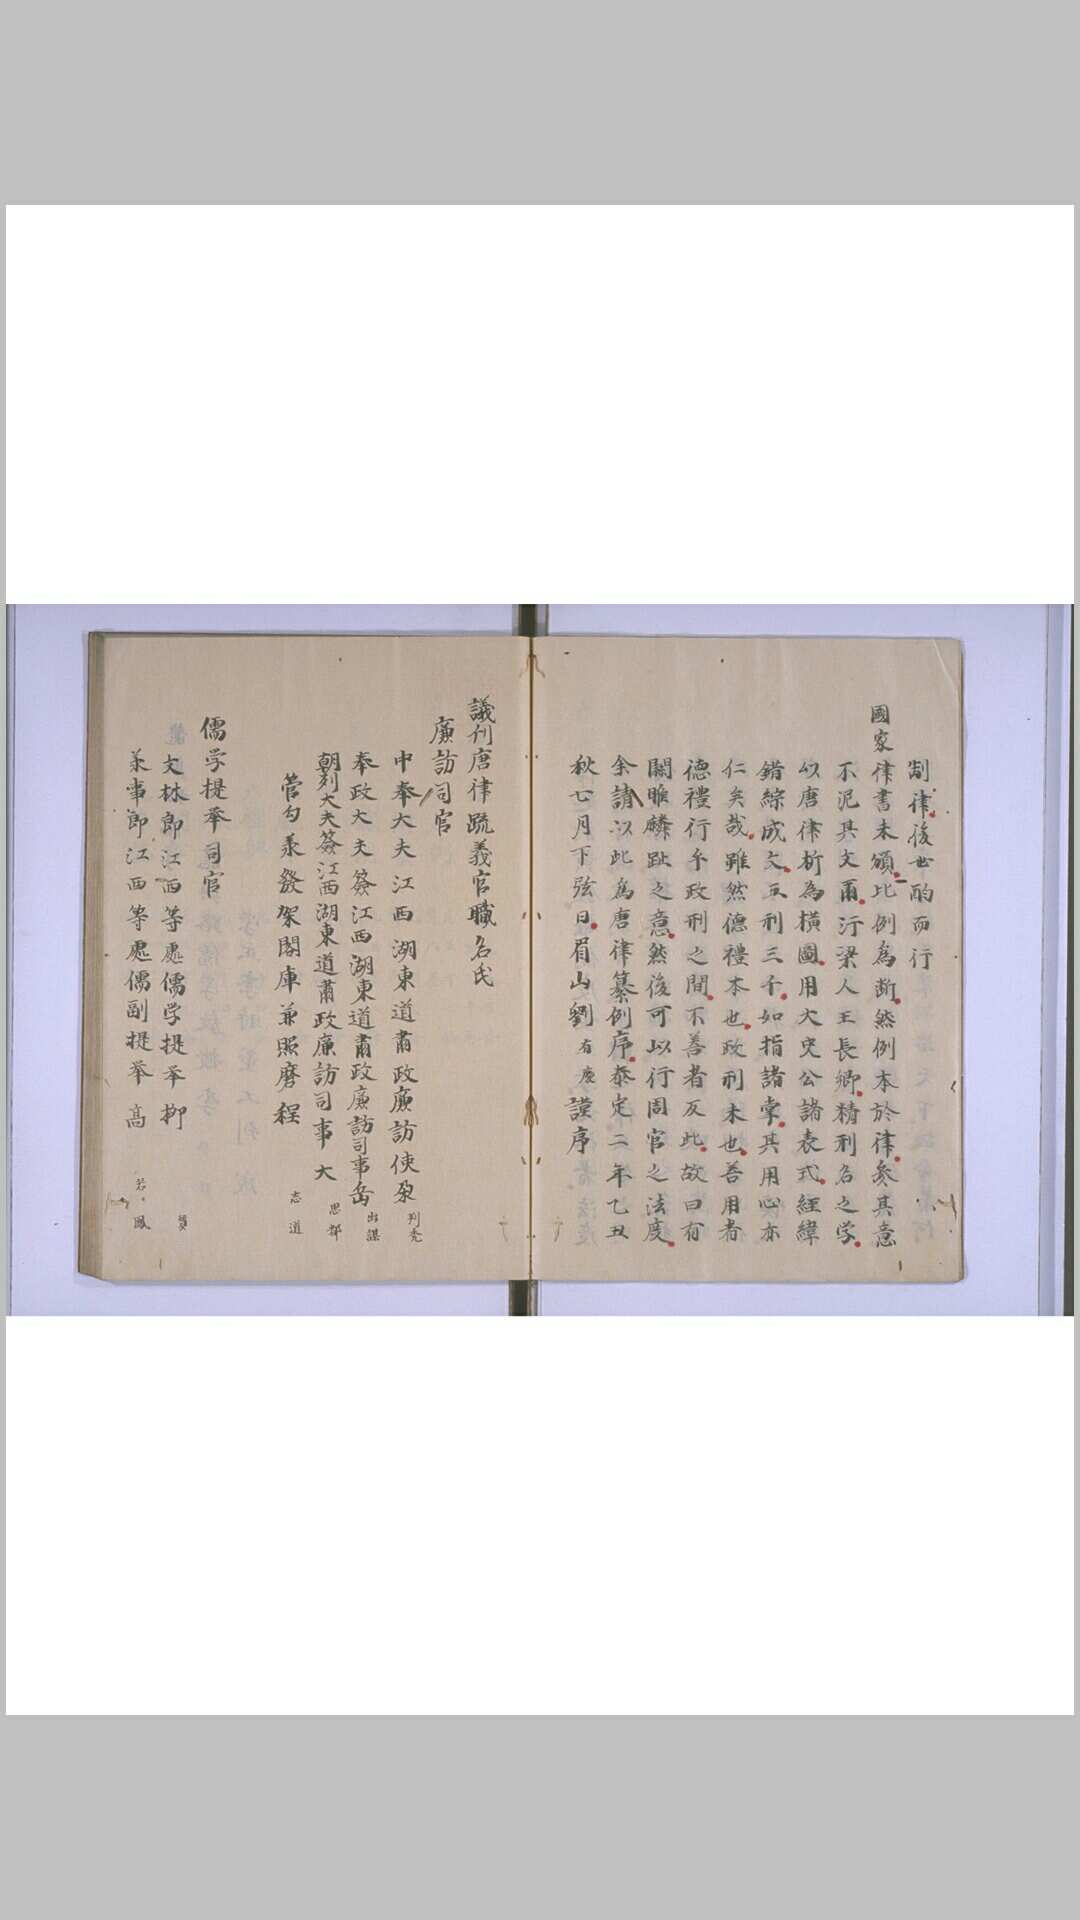 制律後世酌而行
國家律書未頒比例為斷然例本於律參其意
不泥其文爾汴梁人王長卿精刑名之学
以唐律析為橫圖用太史公諸表式經緯
錯綜成文五刑三千如指諸掌其用心亦
仁矣哉雖然德禮本也政刑末也善用者
德禮行乎政刑之間不善者反此故曰有
關睢麟趾之意然後可以行周官之法度
余請以此為唐律纂例序泰定二年乙丑
秋七月下弦日眉山劉有慶謹序
議刊唐律疏義官職名氏
廉訪司官
中奉大夫江西湖東道肅政廉訪使朶 列禿
奉政大夫簽江西湖東道肅政廉訪司事岳 出謀
朝列大夫簽江西湖東道肅政廉訪司事 大 思都
管勾承發架閣庫兼照磨 程 志道
儒学提举司官
文林郎江西等處儒学提举 柳 贇
承事郎江西等處儒副提举 高 若鳳